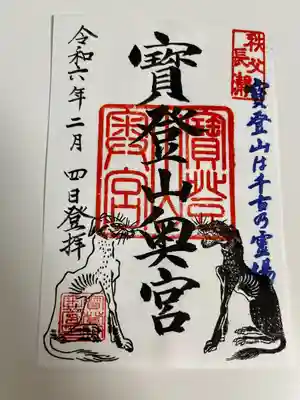 秩父
長瀞
寶登山は千古の霊場
寶登山奥宮
寶登山
奥宮
令和六年二月四日登拝